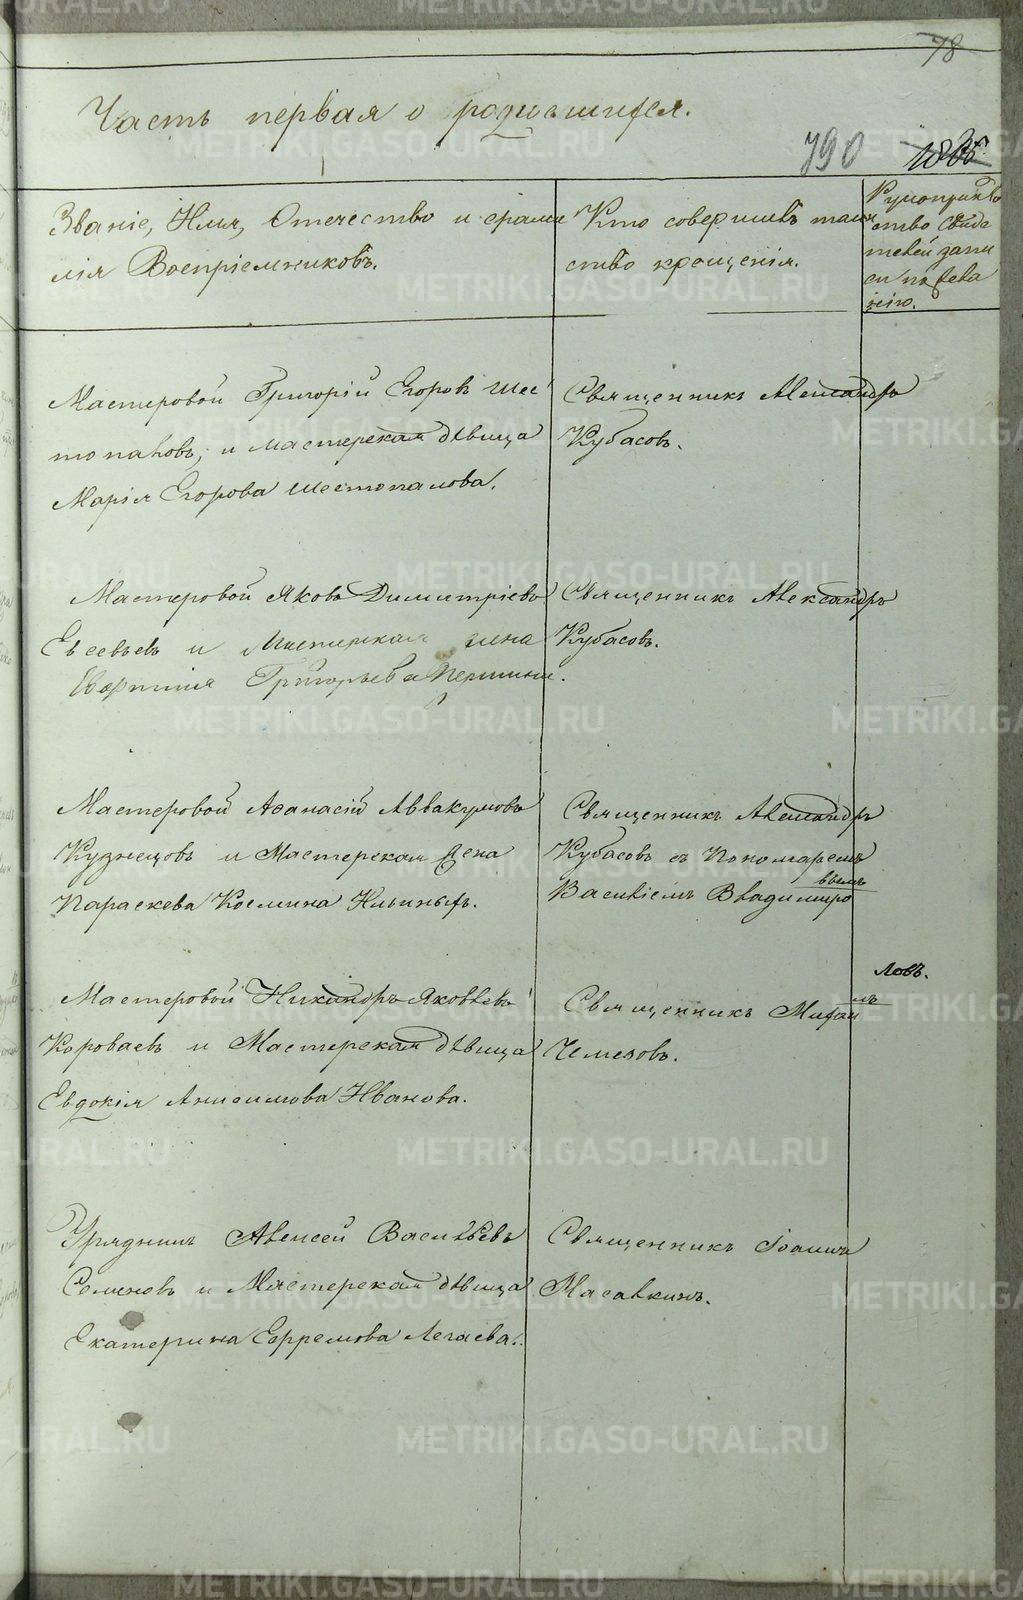 78
Часть первая о родившихся.
790
Званіе, Имя, Отечество и фами
лія Воспріемниковъ.
Кто совершивъ таин
ство крещенія.
Рукоприк
ство свидѣ
телей запи
си по жела
нію.
Мастеровой Григорій Егоровъ Шес
топаловъ, и мастерская дѣвица
Марія Егорова Шестопалова.
Священникъ Александръ
Кубасовъ.
Мастеровой Яковъ Димитріевъ
Евсеевъ и Мастерская жена
Григорьева
Священникъ Александръ
Кубасовъ.
Мастеровой Аѳанасій Аввакумовъ
Кузнецовъ и Мастерская жена
Параскева Космина Ильиныхъ.
Священникъ Александръ
Кубасовъ съ Пономаремъ
Василіемъ Владимиро
вымъ
Мастеровой Никаноръ Яковлевъ
Короваевъ и Мастерская дѣвица
Евдокія Анисимова Иванова.
ловъ.
Священникъ Михаи
лъ
Чемезовъ.
Урядникъ Алексей Васильевъ
Семеновъ и Мастерская дѣвица
Екатерина Ефремова Легаева.
Священникъ Іоаннъ
Масалкинъ.
METRIKI.GASO-URAL.RU